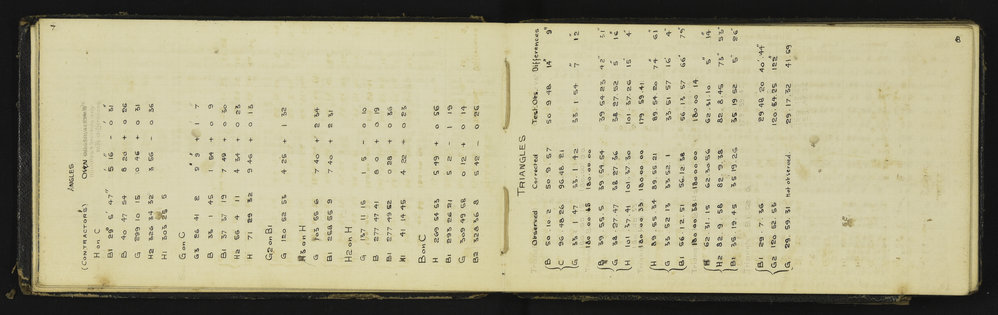 7
ANGLES
(CONTRACTOR'S) OWN
H on C
B1 29° 5' 47" 5 16 - 0 31
B 40 47 54 8 20 + 0 26
G 299 10 15 0 46 + 0 31
H2 326 34 32 3 56 - 0 36
H1 303 25 5
G on C
G3 26 41 2 + 1 7
B 35 45 1 54 + 0 9
B1 37 37 19 7 49 + 0 30
H2 56 4 11 4 34 + 0 23
H 71 29 32 9 45 + 0 13
G2 on B1
G 120 52 53 4 25 + 1 32
H3 on H
G 103 55 6 7 40 + 2 34
B1 258 55 9 7 40 + 2 31
H2 on H
G 137 11 15 1 5 - 0 10
B 277 47 41 8 0 + 0 19
B1 277 49 52 0 28 + 0 36
H1 41 14 45 4 22 + 0 23
B on C
H 269 54 53 5 49 + 0 56
B1 293 26 21 5 2 - 1 19
G 309 49 58 0 12 + 0 14
B2 328 36 8 5 42 - 0 26
8
TRIANGLES
Observed Corrected Test. Obs. Differences
B 50 10 2 50 9 57 50 9 48 14" 9"
C 96 48 26 96 48 21
G 33 1 47 33 1 42 33 1 54 7 12
180 00 00
B 39 55 5 39 54 54 39 54 23 42" 31"
G 38 27 47 38 27 36 38 27 52 5" 16"
H 101 37 41 101 37 30 101 37 26 15 4"
180 00 33 180 00 00 179 59 41
H 89 55 34 89 55 21 89 54 20 74" 61
G 33 52 13 33 52 1 33 51 57 16' 4"
B1 56 12 51 56 12 38 56 13 57 66" 79"
180 00 38 180 00 00 180 00 14
H 62 31 15 62 30 56 62 31 10 5" 14"
H2 82 9 58 82 9 38 82 8 45 73" 53"
B1 35 19 45 35 19 26 35 19 52 5" 26"
B1 29 7 36 29 48 20 40' 44"
G2 120 52 53 120 54 25 122"
G 29 59 31 not observed. 29 17 32 41 59